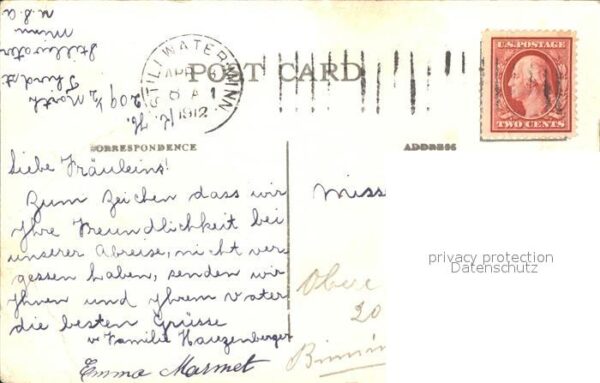 U.S. POSTAGE
TWO CENTS
STILLWATER, MINN.
APR
8 A
1912
1
POST CARD
CORRESPONDENCE
ADDRESS
209½ North
Third st
Stillwater
Minn
U.S.A
Liebe Fräuleins!
Zum Zeichen dass wir
Ihre Freundlichkeit bei
unserer Abreise, nicht ver-
gessen haben, senden wir
Ihnen und Ihrem Vater
die besten Grüsse
v Familie Hauzenberger
Emma Marmet
Miss
Obere
20
privacy protection
Datenschutz